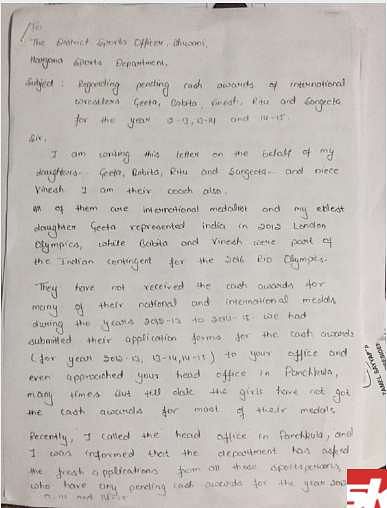 To
The District Sports Officer, Bhiwani,
Haryana Sports Department,
Subject : Regarding pending cash awards of international
wrestlers Geeta, Babita, Vinesh, Ritu and Sangeeta
for the year 12-13, 13-14 and 14-15.
Sir,
I am writing this letter on the behalf of my
daughters- Geeta, Babita, Ritu and Sangeeta- and niece
Vinesh I am their coach also.
All of them are international medalist and my eldest
daughter Geeta represented India in 2012 London
Olympics, while Babita and Vinesh were part of
the Indian contingent for the 2016 Rio Olympic.
They have not received the cash awards for
many of their national and international medals
during the years 2012-13 to 2014-15. We had
submitted their application forms for the cash awards
(for year 2012-13, 13-14, 14-15) to your office and
even approached your head office in Panchkula,
many times but till date the girls have not got
the cash awards for most of their medals.
Recently, I called the head office in Panchkula, and
I was informed that the department has asked
the fresh applications from all those sportspersons,
who have any pending cash awards for the year